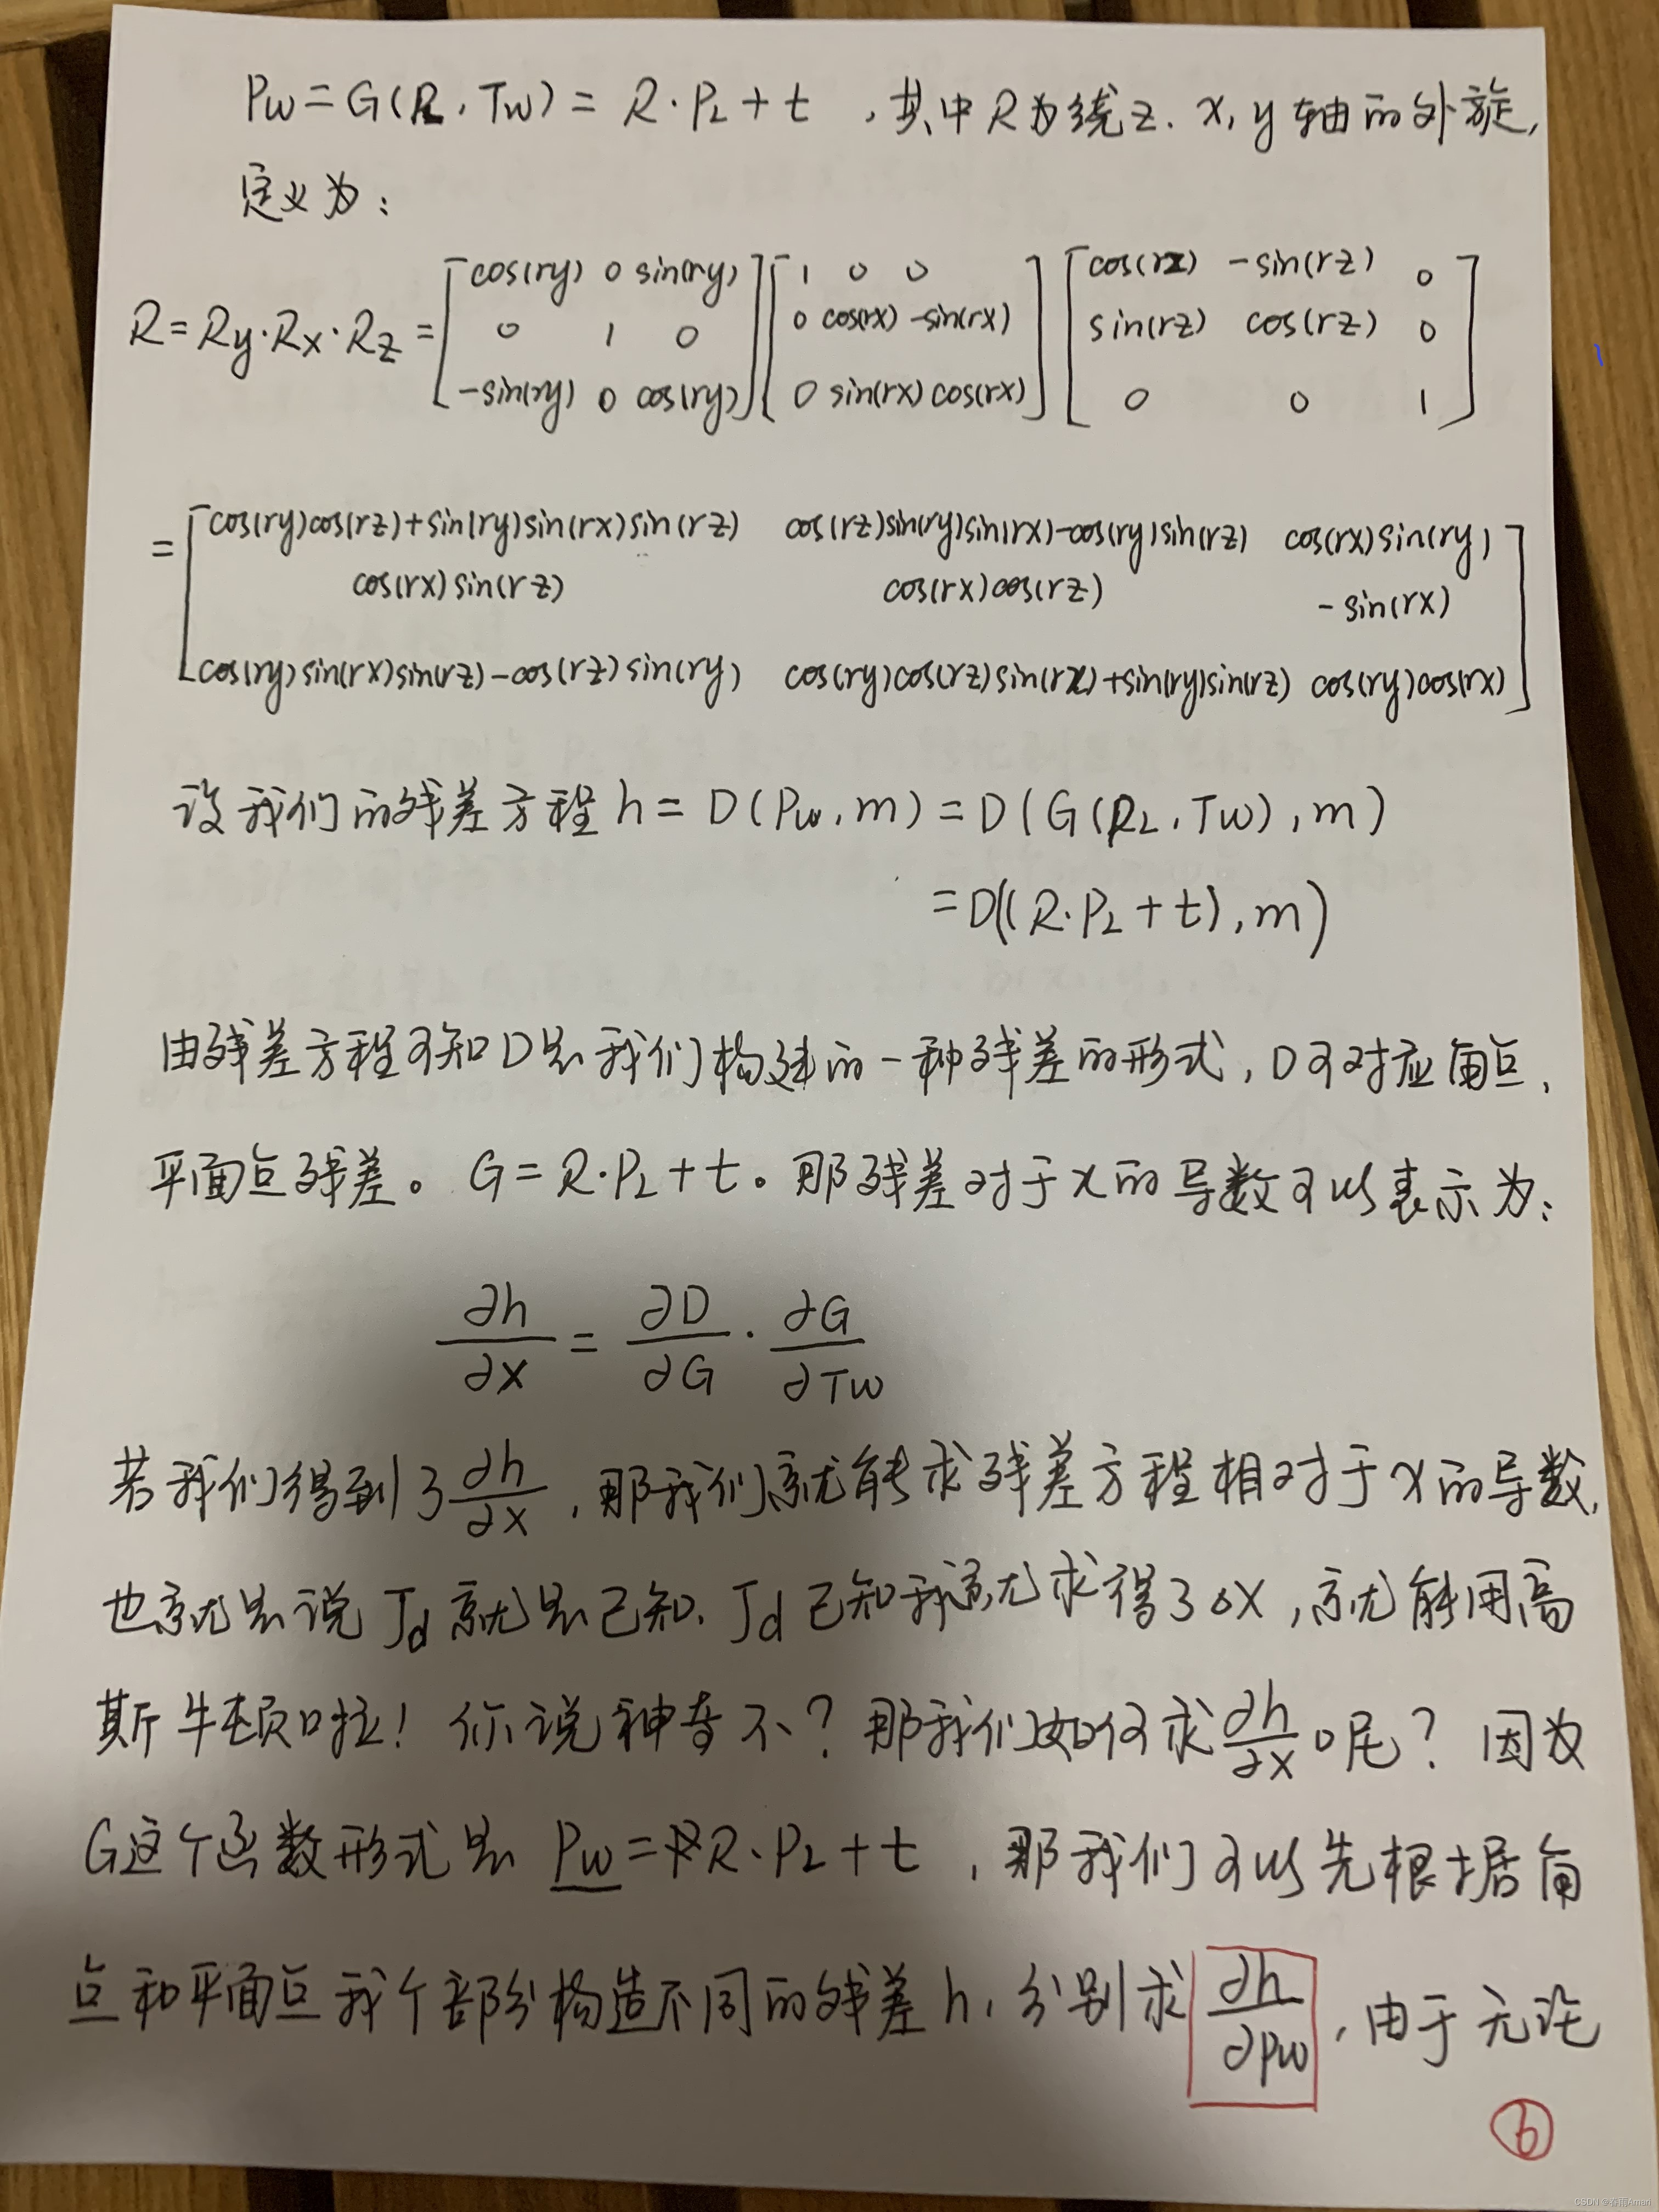 Pw = G(PL, Tw) = R·PL + t ，其中R为绕z、x，y轴的外旋，
定义为：
R = Ry·Rx·Rz = [cos(ry) 0 sin(ry); 0 1 0; -sin(ry) 0 cos(ry)] [1 0 0; 0 cos(rx) -sin(rx); 0 sin(rx) cos(rx)] [cos(rz) -sin(rz) 0; sin(rz) cos(rz) 0; 0 0 1]
= [cos(ry)cos(rz)+sin(ry)sin(rx)sin(rz) cos(rz)sin(ry)sin(rx)-cos(ry)sin(rz) cos(rx)sin(ry)
cos(rx)sin(rz) cos(rx)cos(rz) -sin(rx)
cos(ry)sin(rx)sin(rz)-cos(rz)sin(ry) cos(ry)cos(rz)sin(rx)+sin(ry)sin(rz) cos(ry)cos(rx)]
设我们的残差方程 h = D(Pw, m) = D(G(PL, Tw), m)
= D((R·PL + t), m)
由残差方程可知D是我们构建的一种残差的形式，D可对应角点、
平面点残差。G = R·PL + t。那残差对于x的导数可以表示为：
∂h/∂x = ∂D/∂G · ∂G/∂Tw
若我们得到了∂h/∂x，那我们就能求残差方程相对于x的导数，
也就是说Jd就是已知，Jd已知我就求得了△x，就能用高
斯牛顿啦！你说神奇不？那我们如何求∂h/∂x呢？因为
G这个函数形式是 Pw = R·PL + t ，那我们可以先根据角
点和平面点我个部分构造不同的残差h，分别求∂h/∂pw，由于无论
6
CSDN @春雨Aman